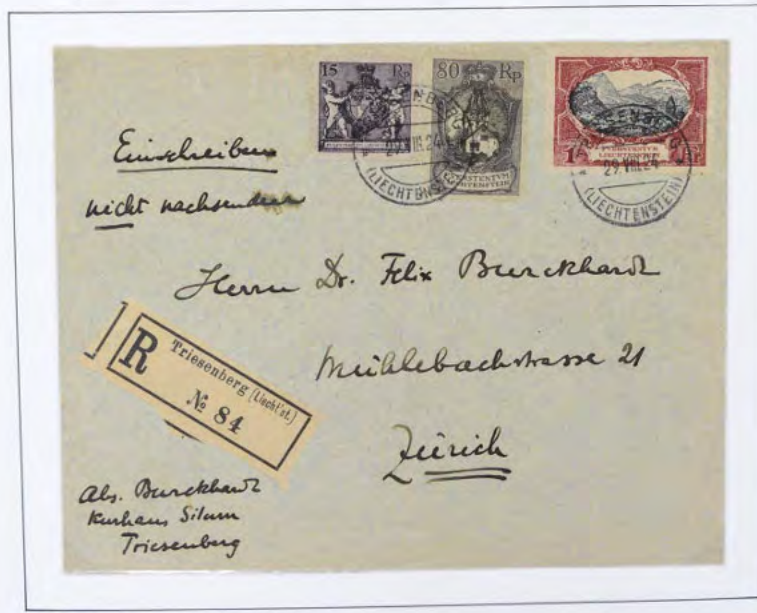 15 Rp
80 Rp
FVRSTENTVM
LIECHTENSTEIN
1
FVRSTENTVM
LIECHTENSTEIN
(LIECHTENSTEIN)
29.VIII.24
(LIECHTENSTEIN)
Einschreiben
nicht nachsenden
Herrn Dr. Felix Burckhardt
Mühlebachstrasse 21
Zürich
R
Triesenberg (Liecht'st.)
№ 84
Abs. Burckhardt
Kurhaus Silum
Triesenberg